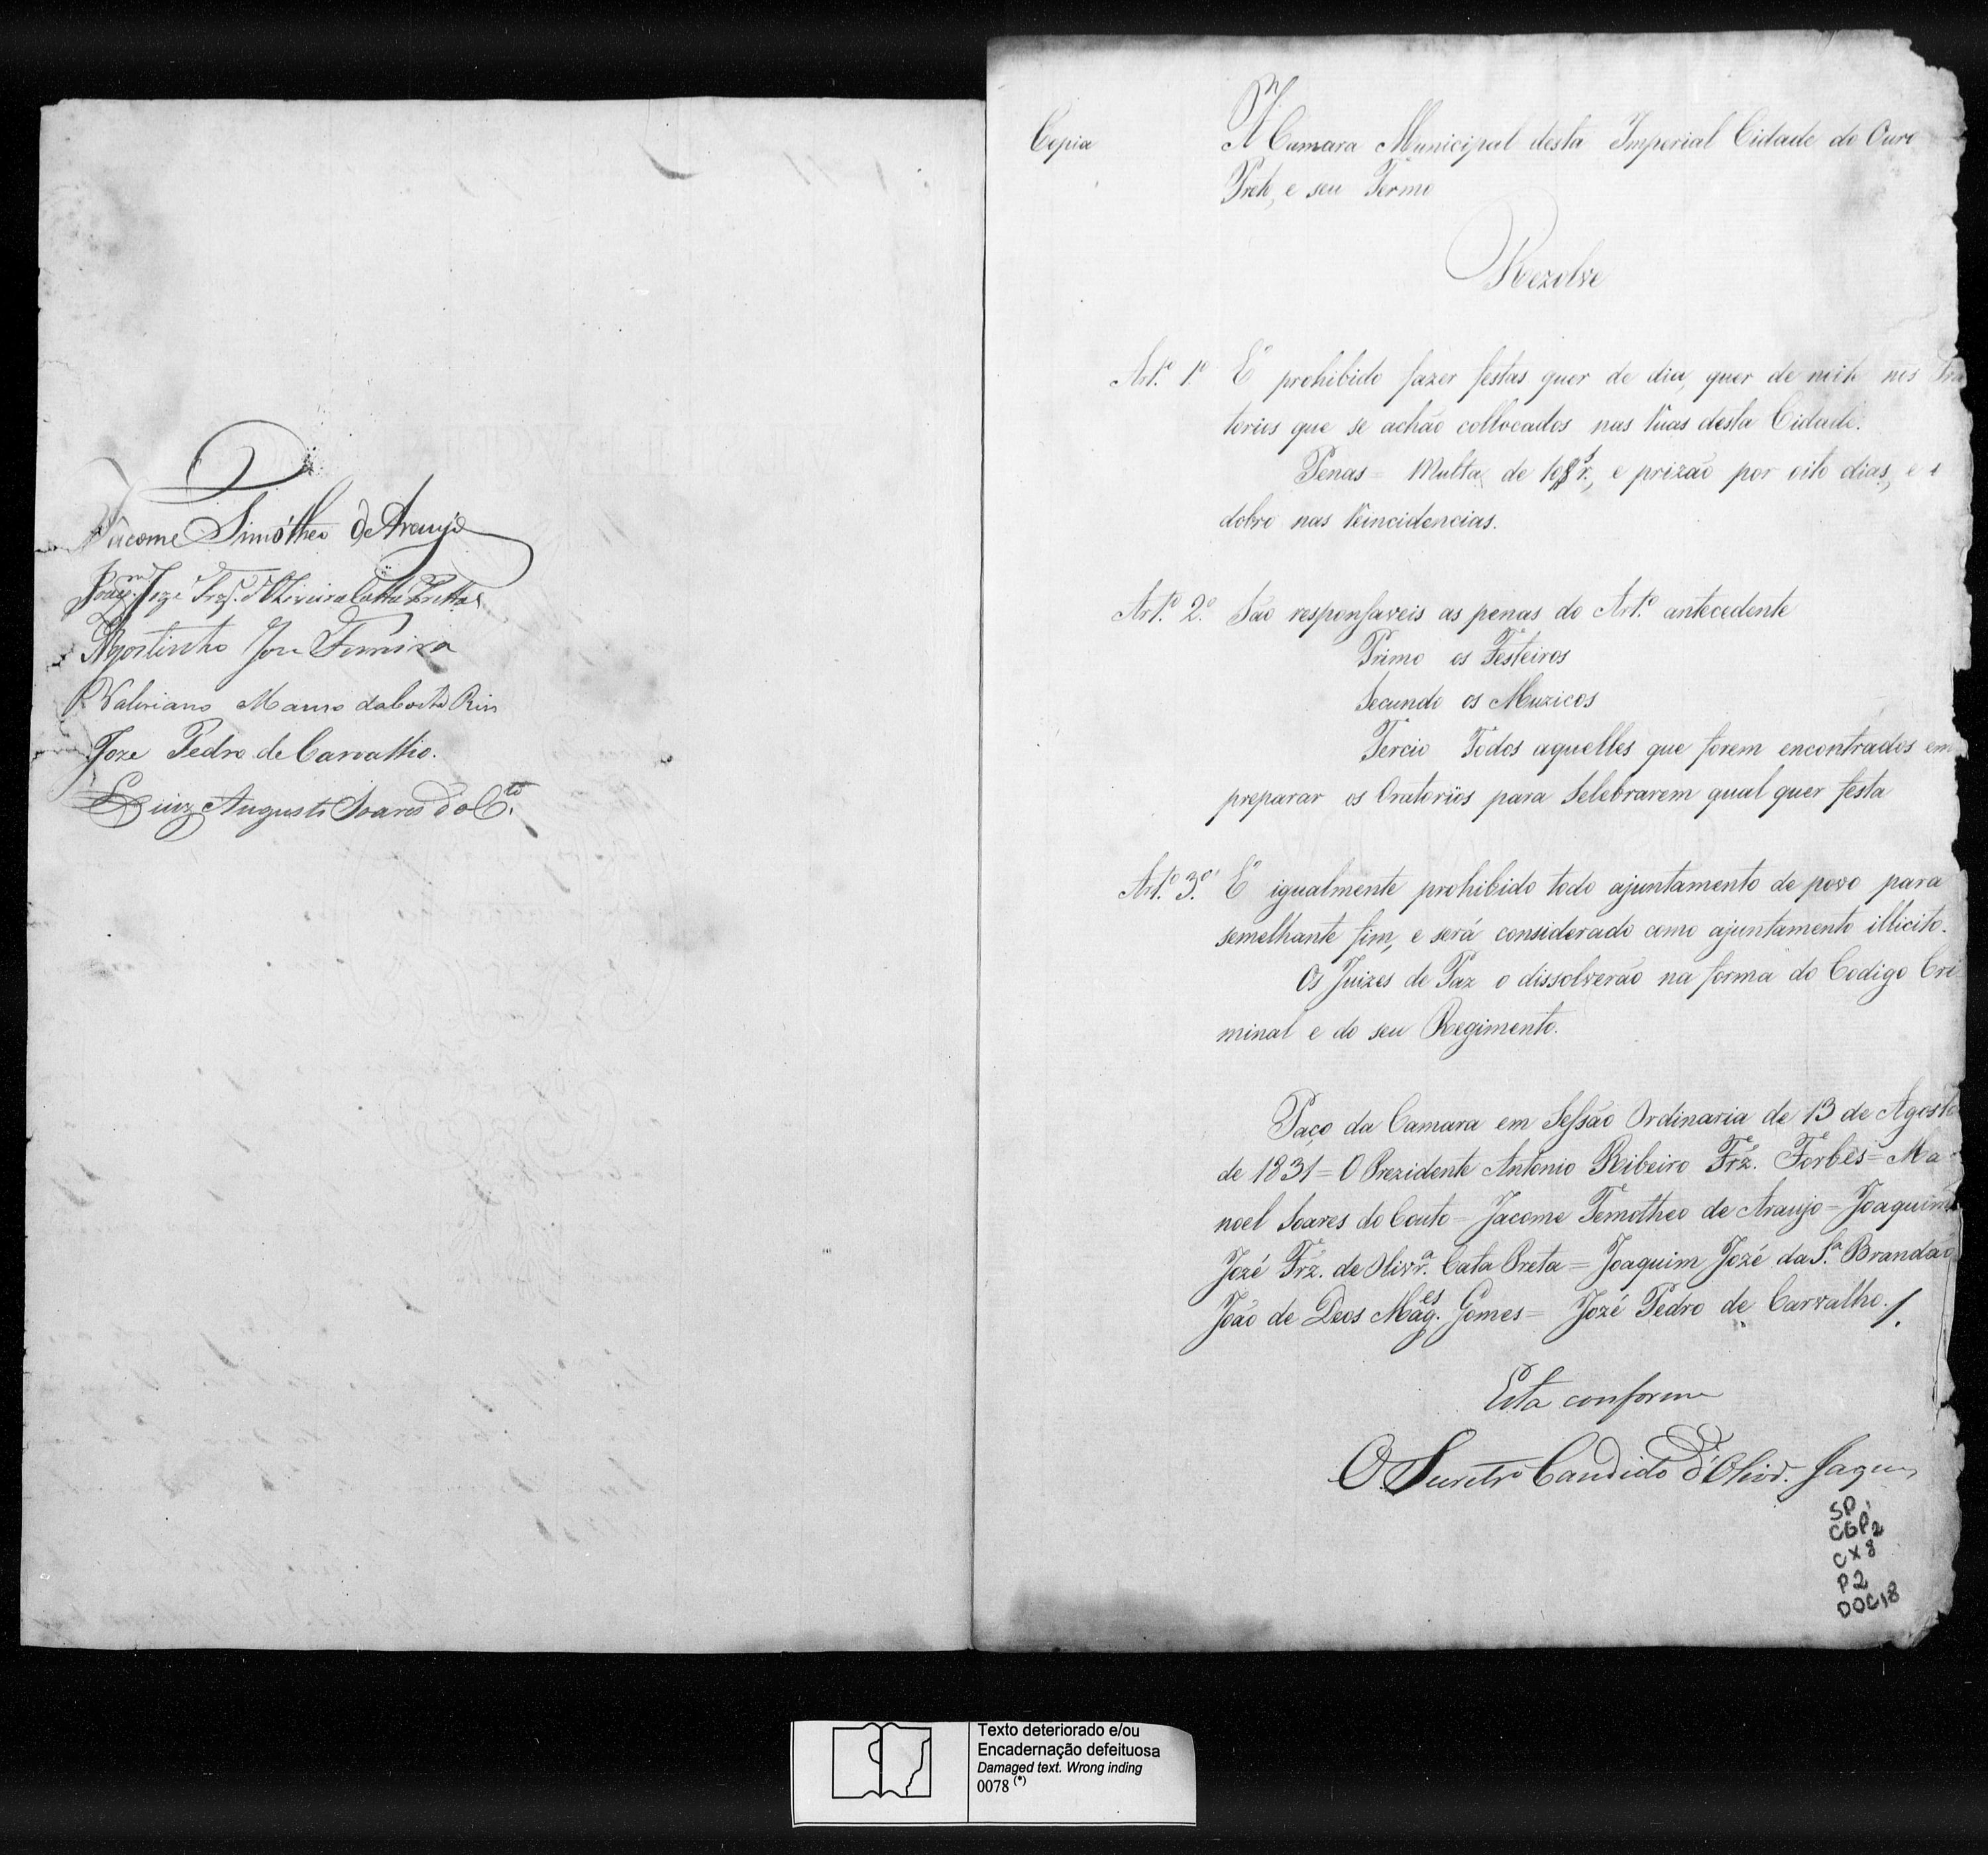 Jacome Timótheo de Araujo
Joaqm. Joze Frz. d'Oliveira Catta Pretta
Agostinho Joze Ferreira
Valeriano Manso da Costa Reis
Joze Pedro de Carvalho.
Luiz Augusto Soares do Cto.
Copia
A Camara Municipal desta Imperial Cidade do Ouro
Preto, e seu Termo
Rezolve
Art.º 1.º É prohibido fazer festas quer de dia, quer de noite nos Ora
torios que se achão collocados nas Ruas desta Cidade.
Penas = Multa de 10$rs., e prizão por oito dias, e o
dobro nas Reincidencias.
Art.º 2.º São responsaveis as penas do Art.º antecedente
Primo os Festeiros
Secundo os Muzicos
Tercio Todos aquelles que forem encontrados em
preparar os Oratorios para Selebrarem qual quer festa
Art.º 3.º É igualmente prohibido todo ajuntamento de povo para
semelhante fim, e será considerado como ajuntamento illicito.
Os Juizes de Paz o dissolverão na forma do Codigo Cri
minal e do seu Regimento.
Paço da Camara em Sessão Ordinaria de 13 de Agosto
de 1831 = O Prezidente Antonio Ribeiro Frz. Forbes = Ma
noel Soares do Couto = Jacome Temotheo de Araujo = Joaquim
Jozé Frz. de Olivr.ª Cata Preta = Joaquim Jozé da S.ª Brandão
João de Deos Mag.es Gomes = Jozé Pedro de Carvalho. /.
Esta conforme
O Secretrº Candido d'Olivr.
SP
CGP2
CX8
P2
DOC18
Texto deteriorado e/ou
Encadernação defeituosa
Damaged text. Wrong inding
0078 (*)